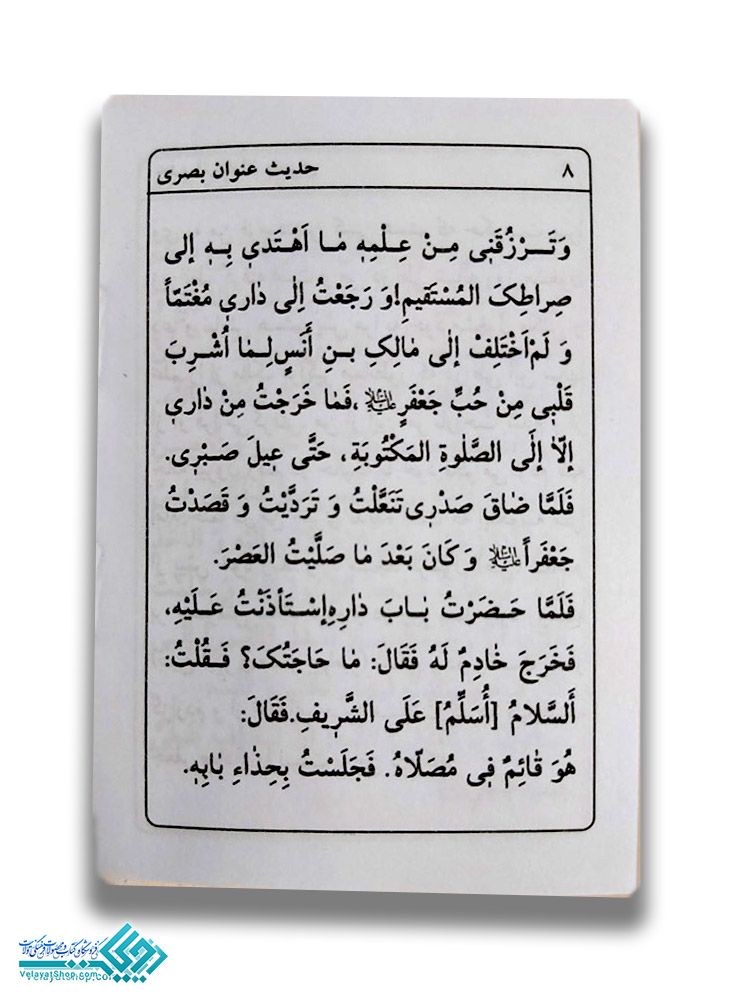 ۸
حدیث عنوان بصری
وَتَــرْزُقَنِی مِـنْ عِـلْمِهِ مٰـا اَهْـتَدی بِـهِ إلی
صِراطِکَ المُسْتَقیمِ!وَ رَجَعْتُ اِلٰی دٰاری مُغْتَمّاً
وَ لَمْ اَخْتَلِفْ إلٰی مٰالِکِ بـنِ أَنَسٍ لِـمٰا أُشْـرِبَ
قَلْبی مِنْ حُبِّ جَعْفَرٍ علیه‌السلام، فَمٰا خَرَجْتُ مِنْ دٰاری
إلّا إلَی الصَّلٰوةِ المَکْتُوبَةِ، حَتَّی عیلَ صَـبْری.
فَلَمَّا ضٰاقَ صَدْری تَنَعَّلْتُ وَ تَرَدَّیْتُ وَ قَصَدْتُ
جَعْفَراً علیه‌السلام وَ کَانَ بَعْدَ مٰا صَلَّیْتُ العَصْرَ.
فَلَمَّا حَـضَرْتُ بٰـابَ دٰارِهِ إسْـتَأذَنْتُ عَـلَیْهِ،
فَخَرَجَ خٰادِمٌ لَهُ فَقَالَ: مٰا حَاجَتُکَ؟ فَـقُلْتُ:
أَلسَّلامُ [أُسَلِّمُ] عَلَی الشَّریفِ.فَقَالَ:
هُوَ قٰائِمٌ فی مُصَلّاهُ. فَجَلَسْتُ بِحِذٰاءِ بٰابِهِ.
VelayatShop.com